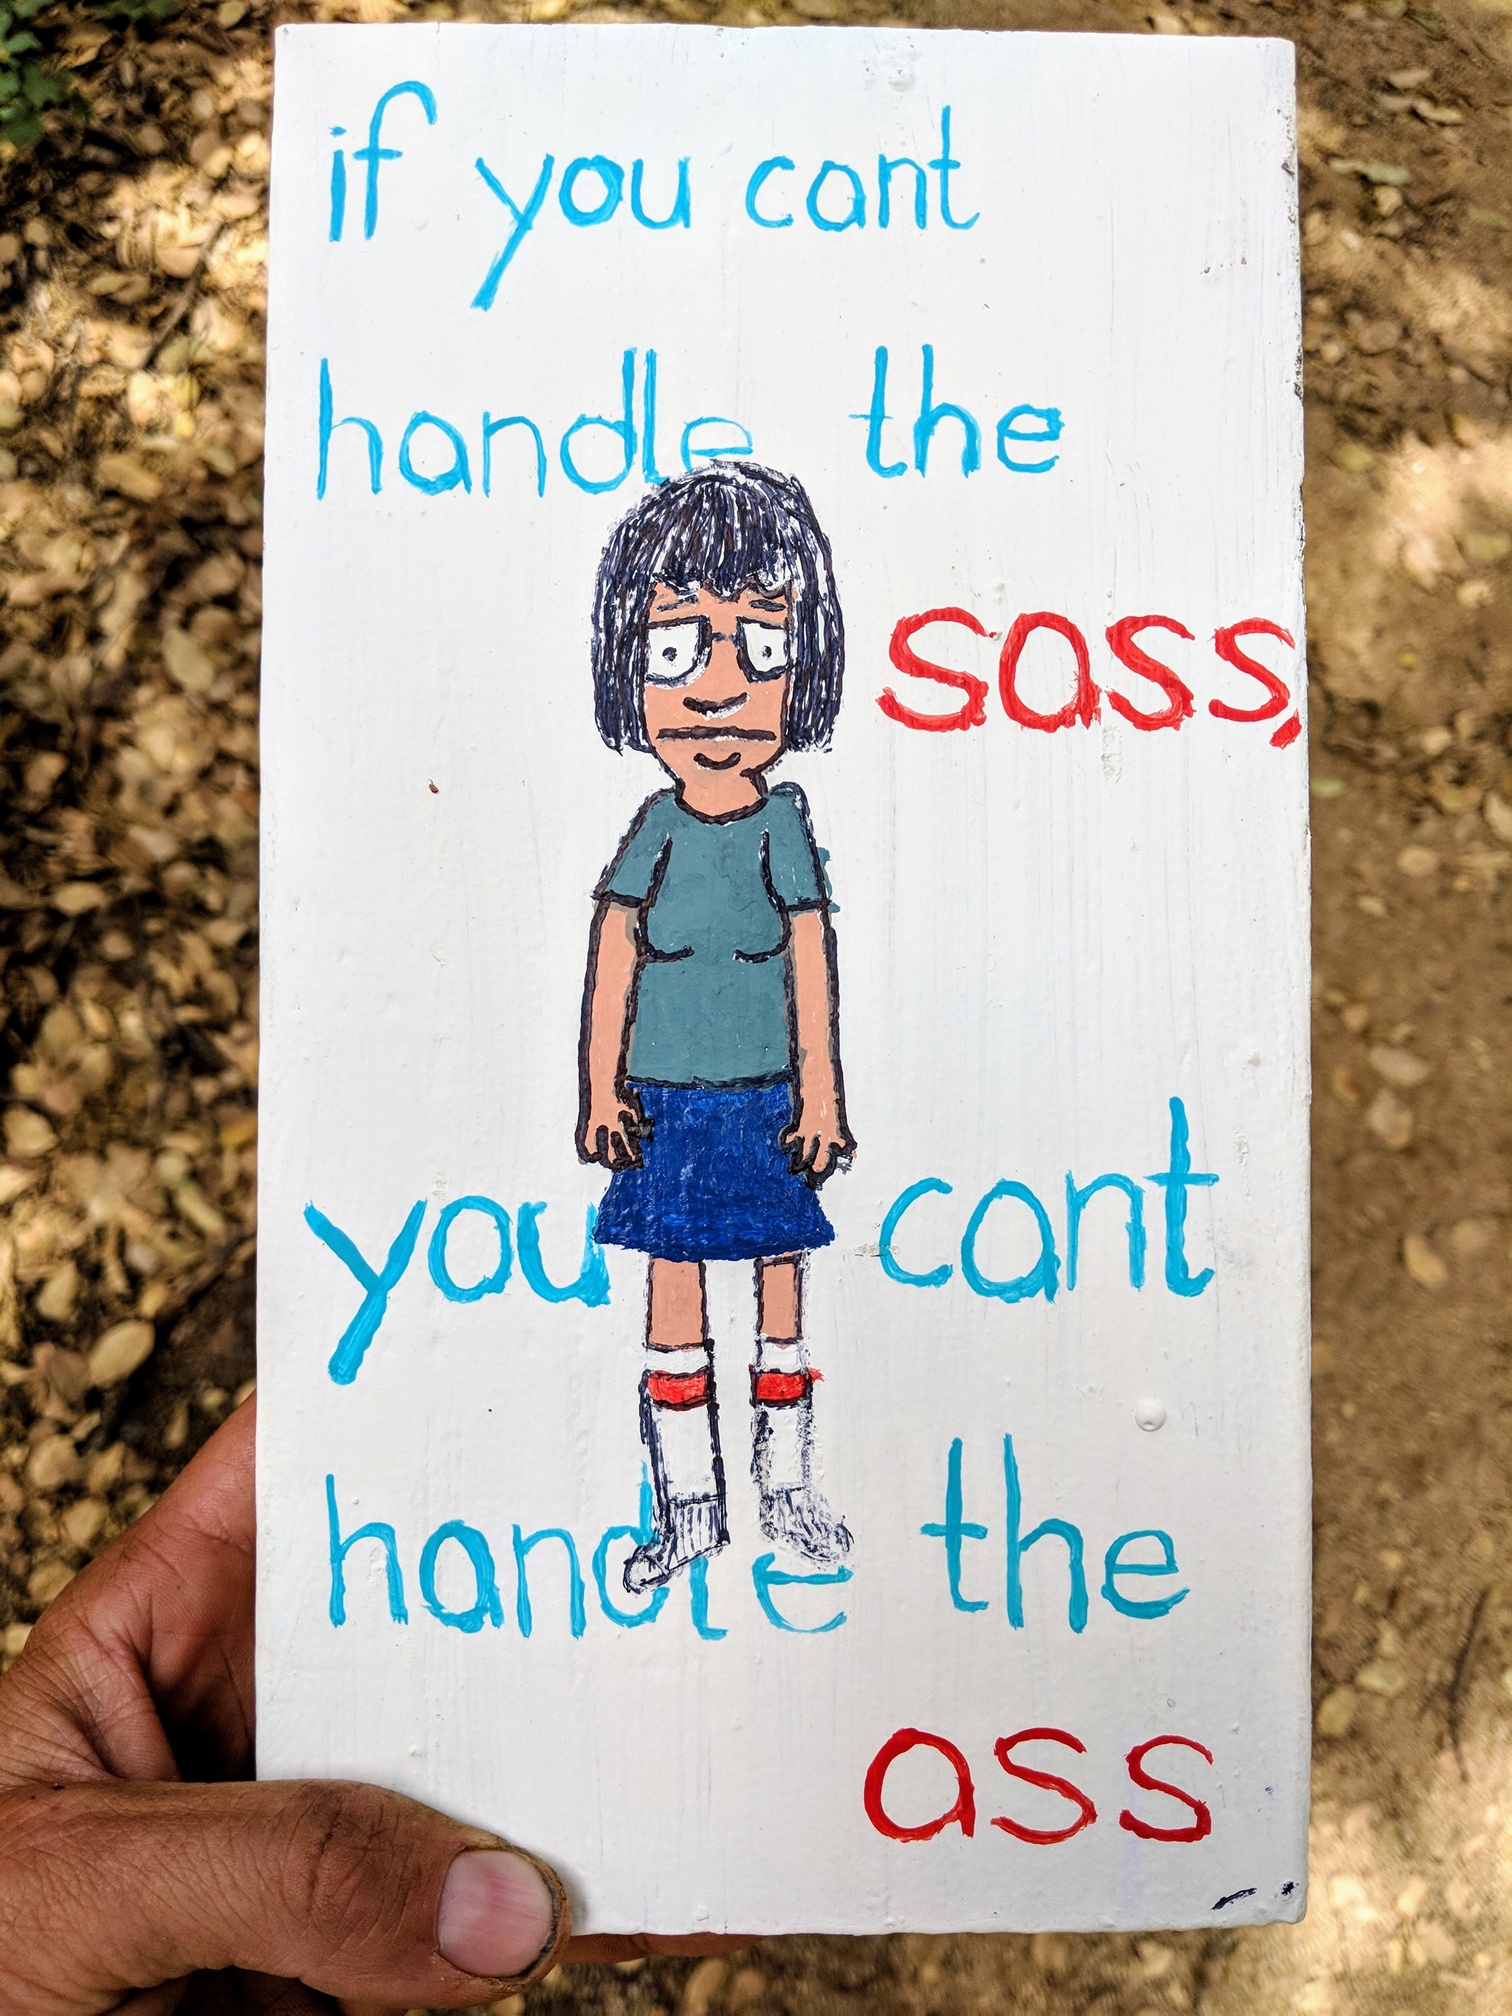 if you cant
handle the
sass,
you cant
handle the
ass